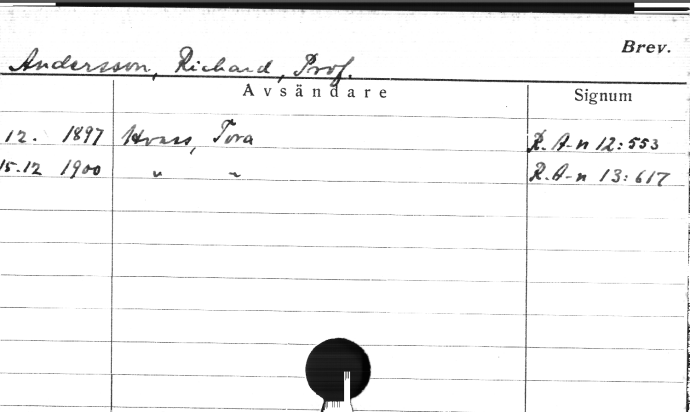 Brev.
Andersson, Richard, Prof.
Avsändare Signum
12. 1897 Hvass, Tora R. A-n 12:553
15.12 1900 " " R. A-n 13:617